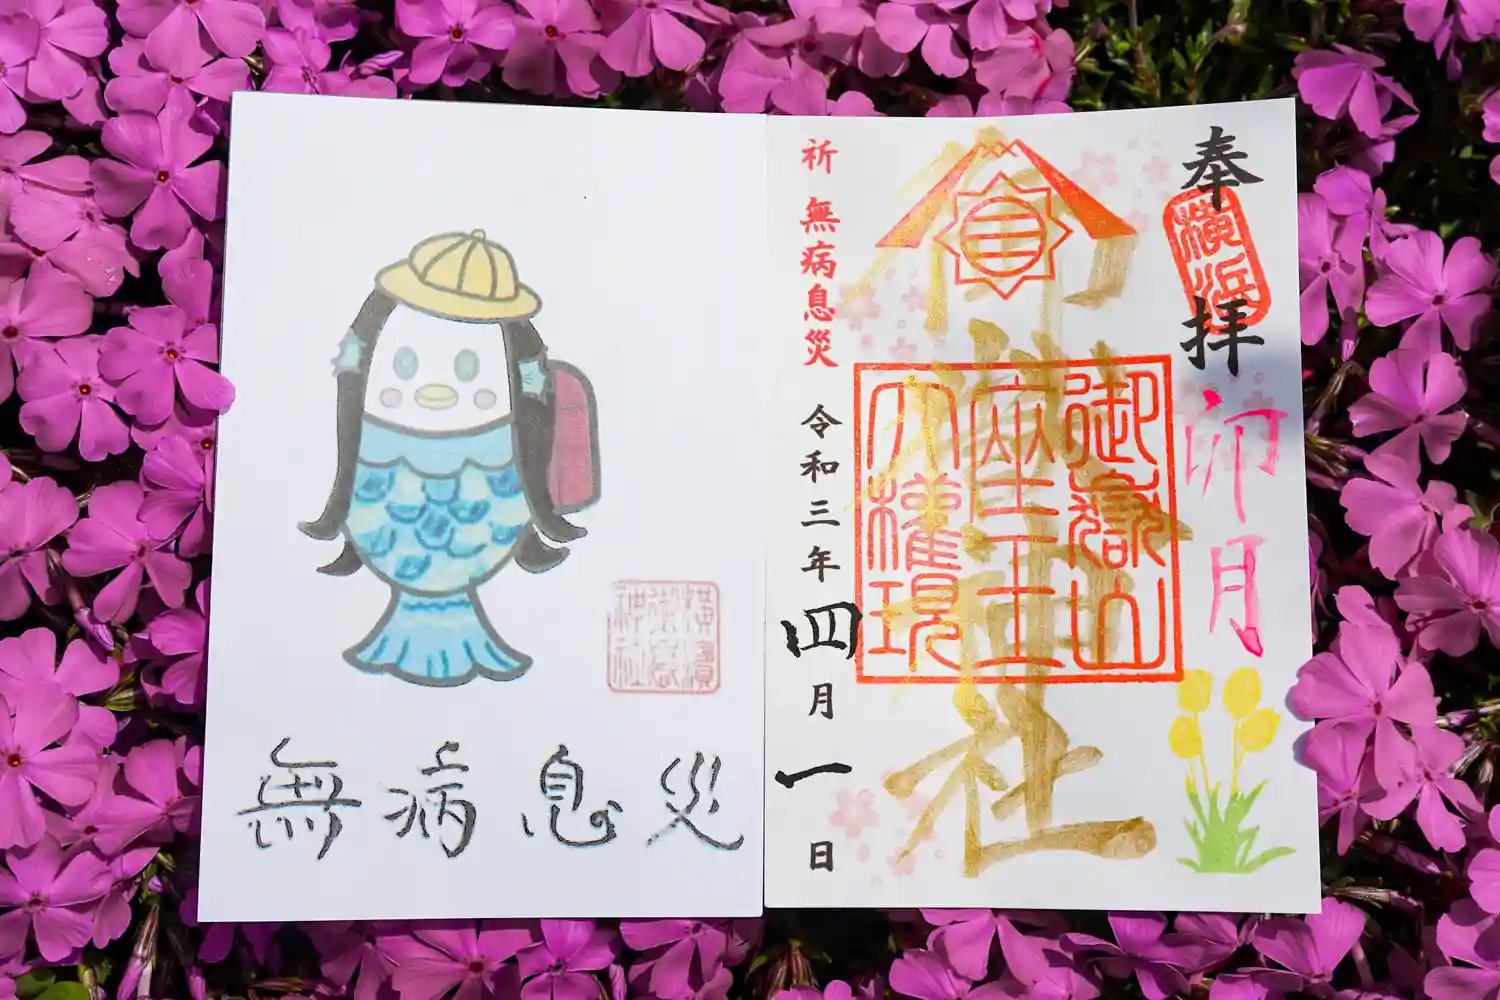 奉拝
横浜
卯月
御嶽神社
御嶽山
座王王
大権現
祈 無病息災 令和三年四月一日
横濱
御嶽
神社
無病息災